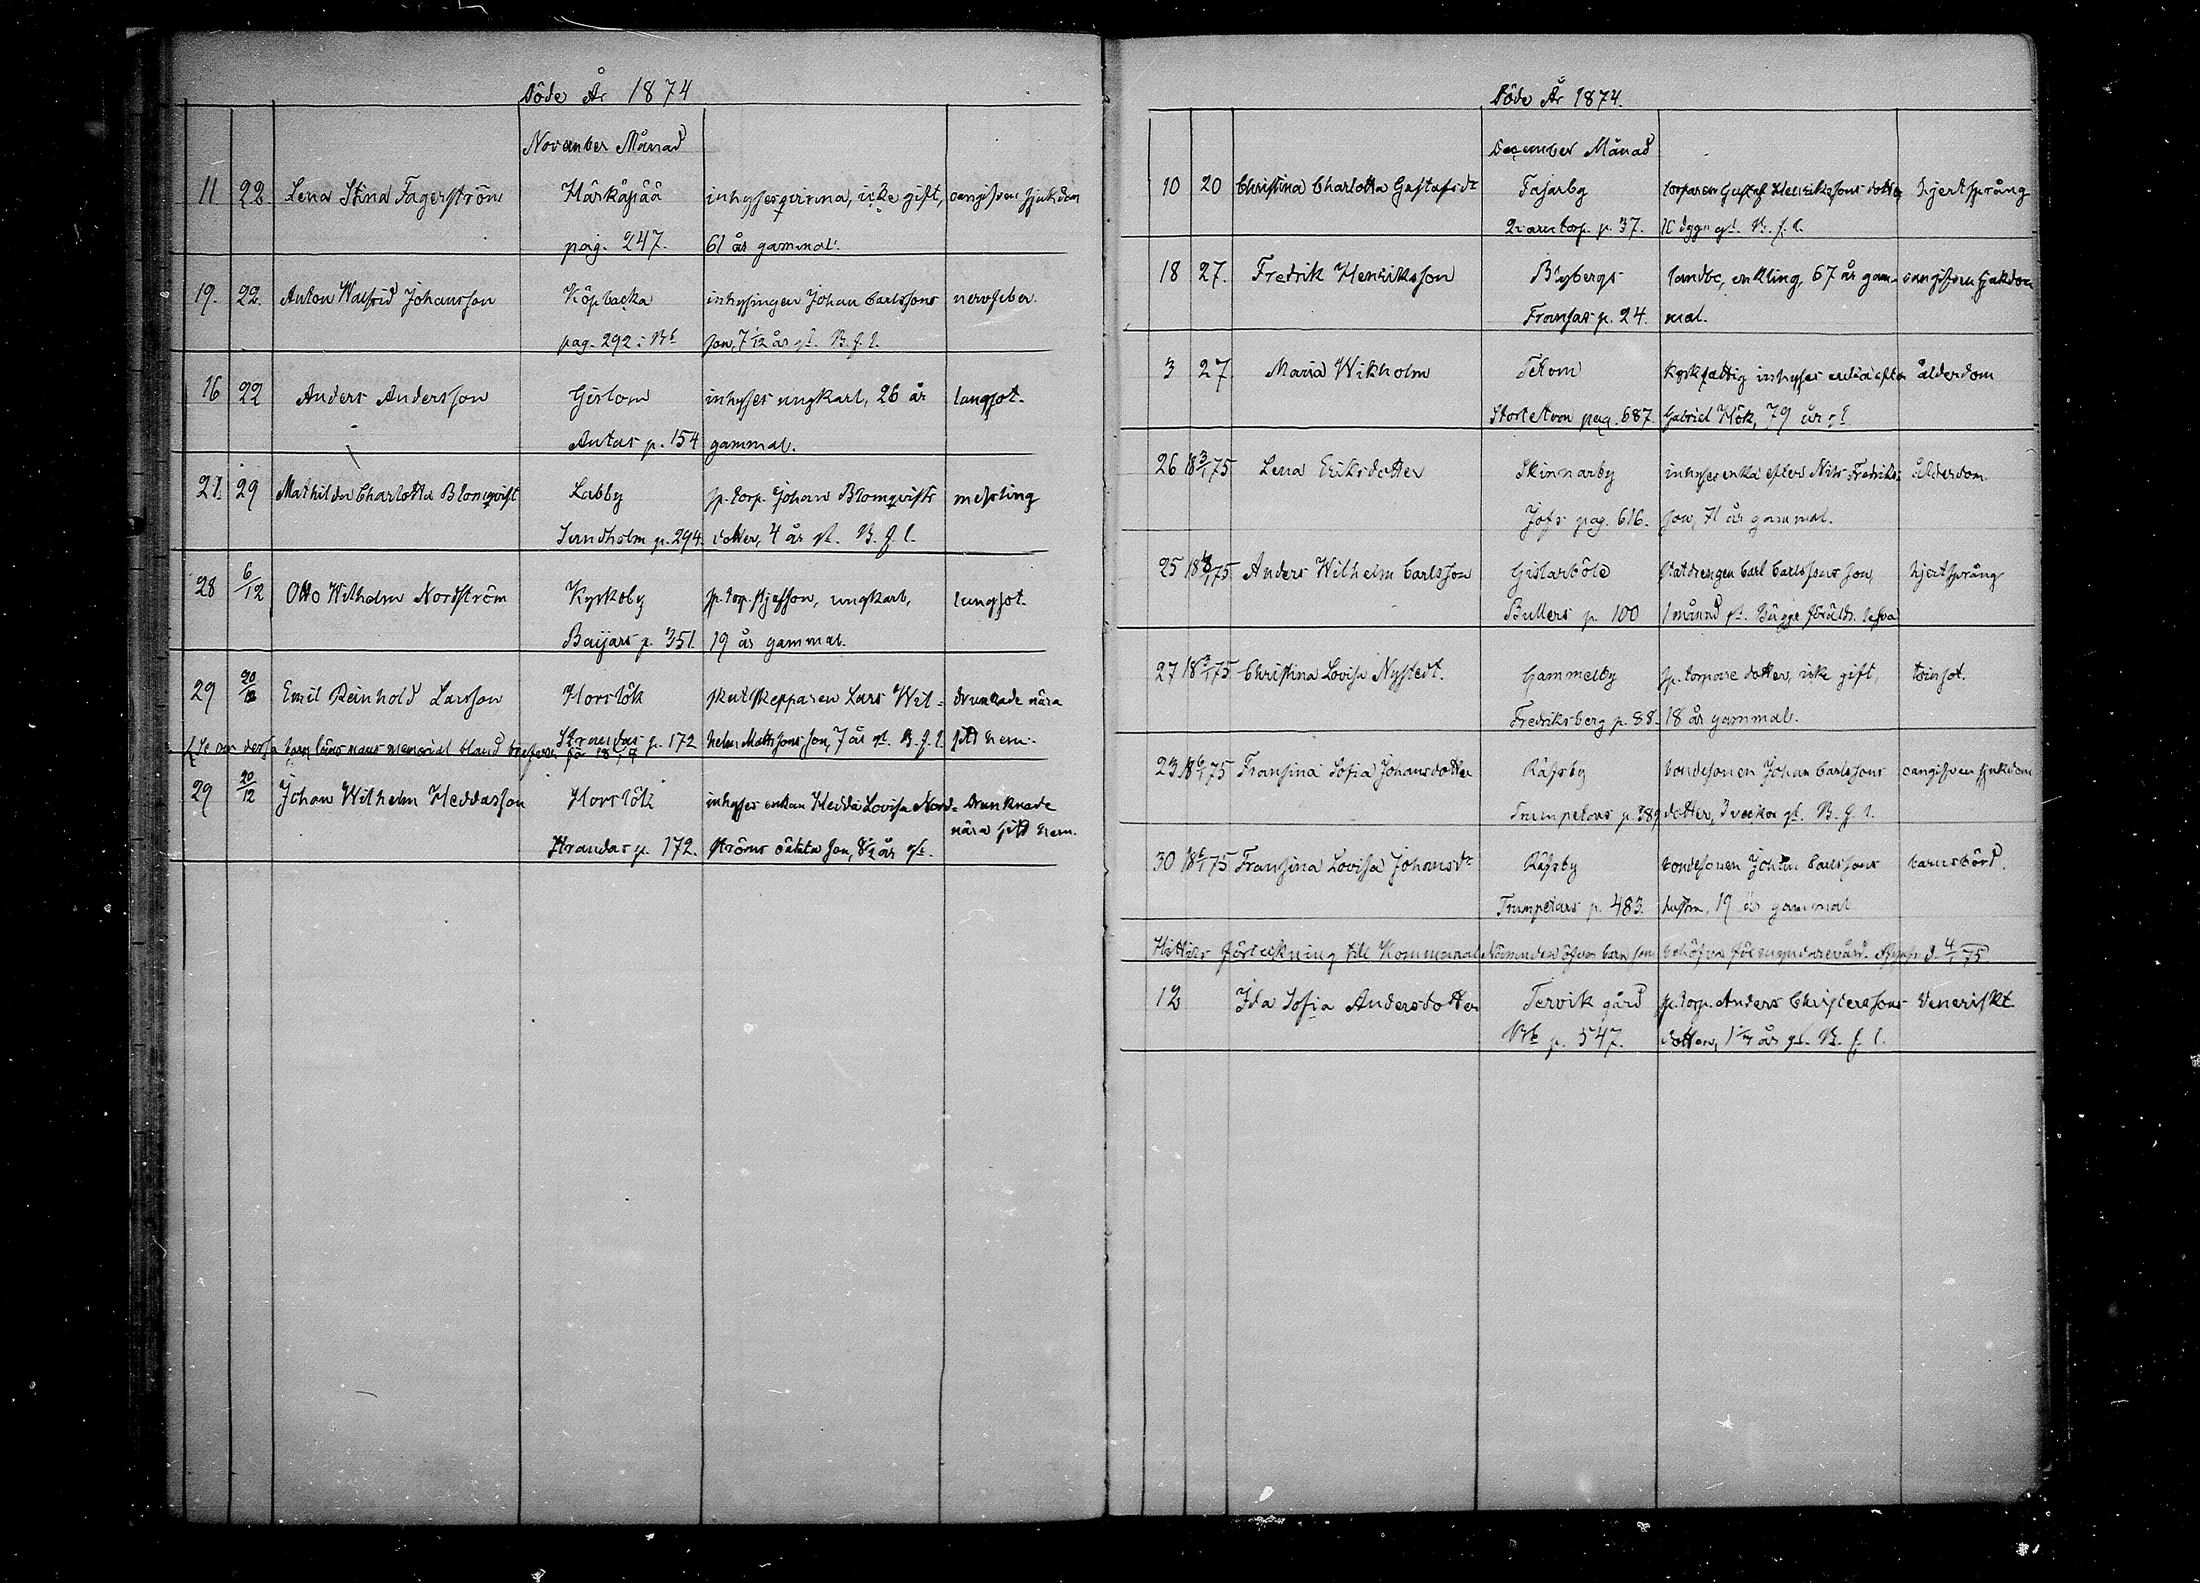 Döde År 1874
November Månad
11 22 Lena Stina Fagerström Härkäpää inhysesqvinna, icke gift, oangifven sjukdom
pag. 247. 61 år gammal.
19. 22. Anton Walfrid Johansson Köpbacka inhysingen Johan Carlssons nervfeber.
pag. 292: son, 7 1/12 år gl. B. f. l.
16 22 Anders Andersson Gislom inhyses ungkarl, 26 år lungsot.
Antas p. 154 gammal.
21. 29 Mathilda Charlotta Blomqvist Labby sp. torp. Johan Blomqvists messling
Sundholm p. 294. dotter, 4 år gl. B. f. l.
28 6/12 Otto Wilhelm Nordström Kyrkoby sp. torp. ungkarl, lungsot.
Baijars p. 351. 19 år gammal.
29 20/12 Emil Reinhold Larsson Horslök skutskepparen Lars Wil- drunknade nära
Strandas p. 172 helm Mattssons son, 7 år gl. B. f. l. sitt hem.
memorial bland
29 20/12 Johan Wilhelm Heddasson Horslök inhyses enkan Hedda Lovisa Nord- Drunknade
nära sitt hem.
Strandas p. 172. ströms oäkta son, 8 1/2 år gl.
Döde År 1874.
December Månad
10 20 Christina Charlotta Gustafsdr Fasarby torparen Gustaf Henrikssons dotter hjertsprång
Qvarntorp. p. 37. 10 dygn gl. B. f. l.
18 27. Fredrik Henriksson Byberg landbo, enkling, 67 år gam- oangifven sjukdom
Fransas p. 24. mal.
3 27. Maria Wikholm Tetom kyrkfattig inhyses enka efter ålderdom
Stortetom pag. 687. Gabriel Hök, 79 år gl.
26 18 3/1 75 Lena Eriksdotter Skinnarby inhysesenka efter Nils Fredriks- ålderdom
Jofs pag. 616. son, 71 år gammal.
25 18 75 Anders Wilhelm Carlsson Gislarböle statdrengen Carl Carlssons son, hjertsprång
Bullers p. 100 1 månad gl. Bägge föräldr. lefva
27 18 3/1 75 Christina Lovisa Nystedt. Gammelby sp. torpare dotter, icke gift, tvinsot.
Fredriksberg p. 88. 18 år gammal.
23 18 6/1 75 Fransina Sofia Johansdotter Räfsby bondesonen Johan Carlssons oangifven sjukdom
Trumpetars p. 389 dotter, 3 veckor gl. B. f. l.
30 18 6/1 75 Fransina Lovisa Johansdr Räfsby bondesonen Johan Carlssons barnsbörd.
Trumpetars p. 483. hustru, 19 år gammal
Hittills förteckning till Kommunal Nämnden öfver barn som behöfva förmyndarevård. d. 4/1 75
12 Ida Sofia Andersdotter Tervik gård sp. torp. Anders Christerssons Veneriskt
p. 547. dotter, år gl. B. f. l.